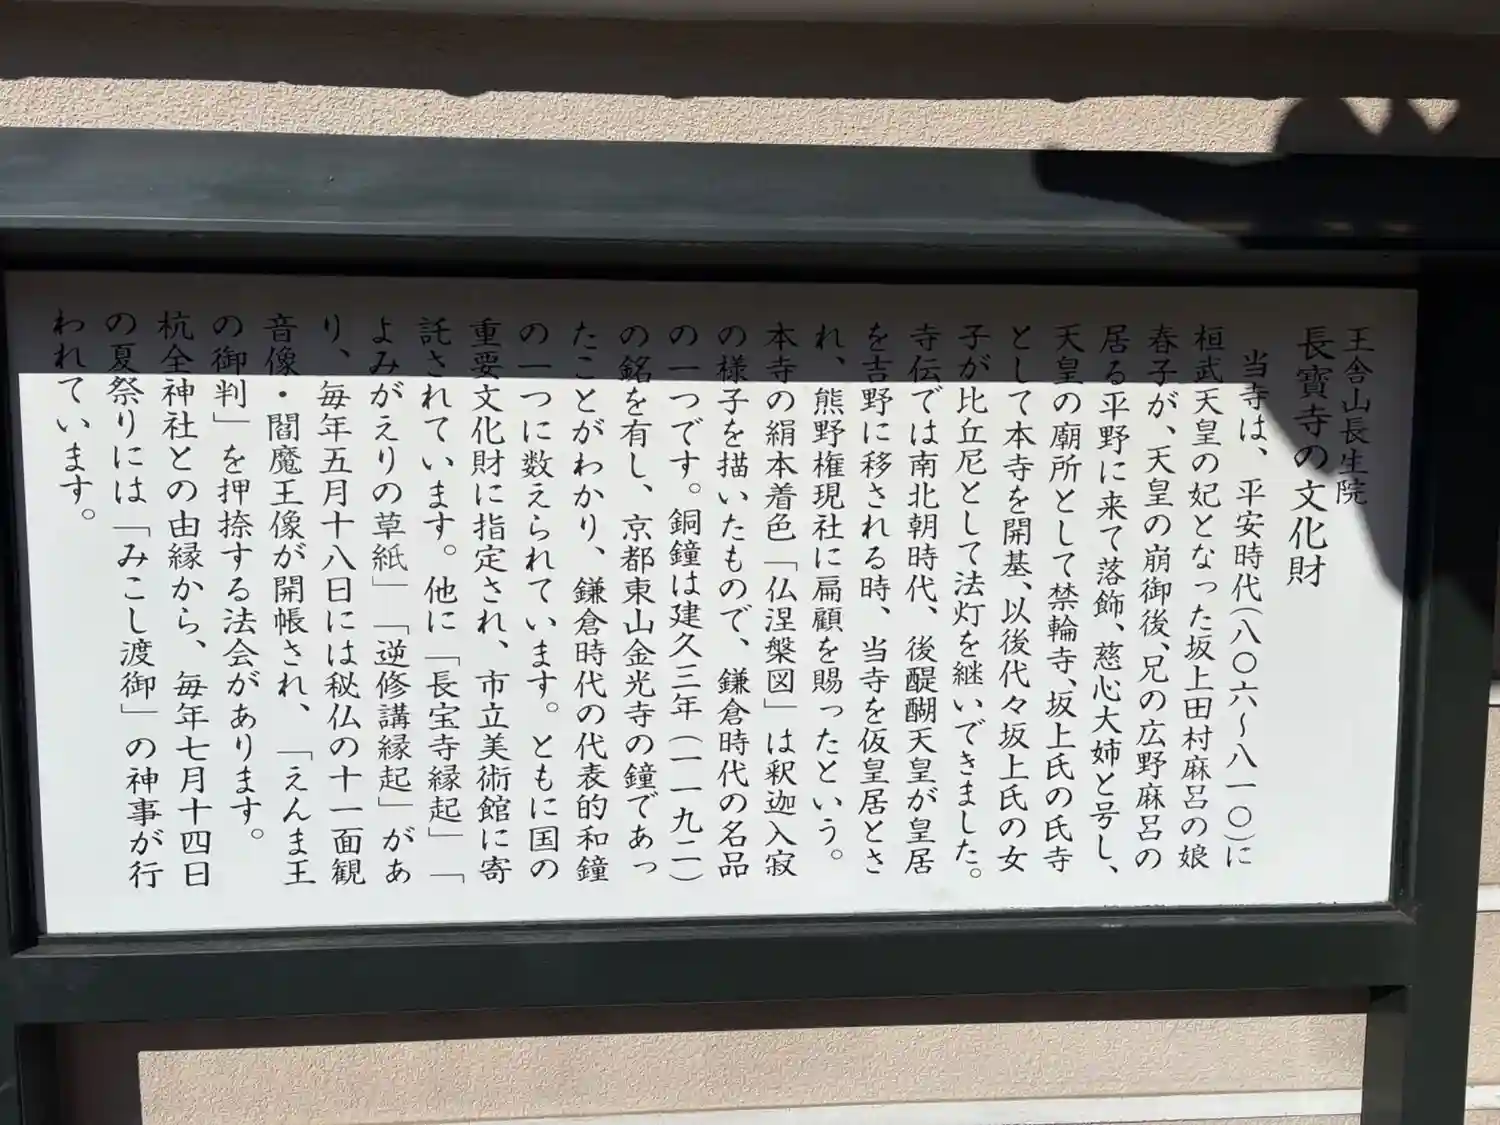 王舎山長生院
長寶寺の文化財
当寺は、平安時代(八〇六〜八一〇)に
桓武天皇の妃となった坂上田村麻呂の娘
春子が、天皇の崩御後、兄の広野麻呂の
居る平野に来て落飾、慈心大姉と号し、
天皇の廟所として禁輪寺、坂上氏の氏寺
として本寺を開基、以後代々坂上氏の女
子が比丘尼として法灯を継いできました。
寺伝では南北朝時代、後醍醐天皇が皇居
を吉野に移される時、当寺を仮皇居とさ
れ、熊野権現社に扁顧を賜ったという。
本寺の絹本着色「仏涅槃図」は釈迦入寂
の様子を描いたもので、鎌倉時代の名品
の一つです。銅鐘は建久三年(一一九二)
の銘を有し、京都東山金光寺の鐘であっ
たことがわかり、鎌倉時代の代表的和鐘
の一つに数えられています。ともに国の
重要文化財に指定され、市立美術館に寄
託されています。他に「長宝寺縁起」「
よみがえりの草紙」「逆修講縁起」があ
り、毎年五月十八日には秘仏の十一面観
音像・閻魔王像が開帳され、「えんま王
の御判」を押捺する法会があります。
杭全神社との由縁から、毎年七月十四日
の夏祭りには「みこし渡御」の神事が行
われています。